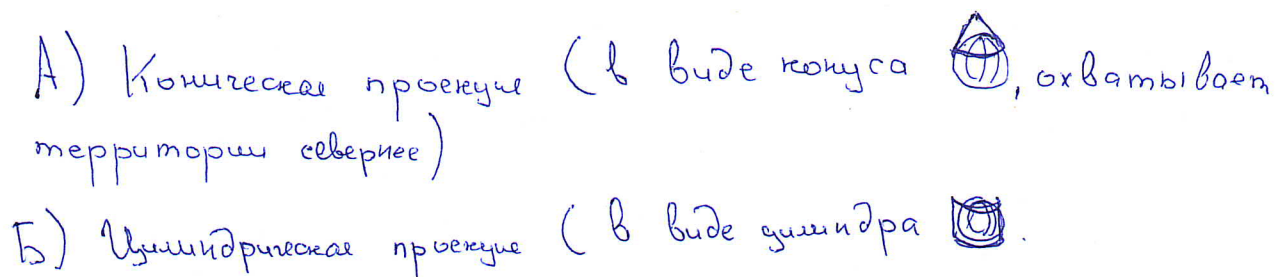 А) Коническая проекция (в виде конуса , охватывает
территории севернее)
Б) Цилиндрическая проекция (в виде цилиндра .